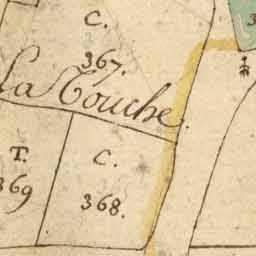 C.
367.
La Touche.
T.
369
C.
368.
3